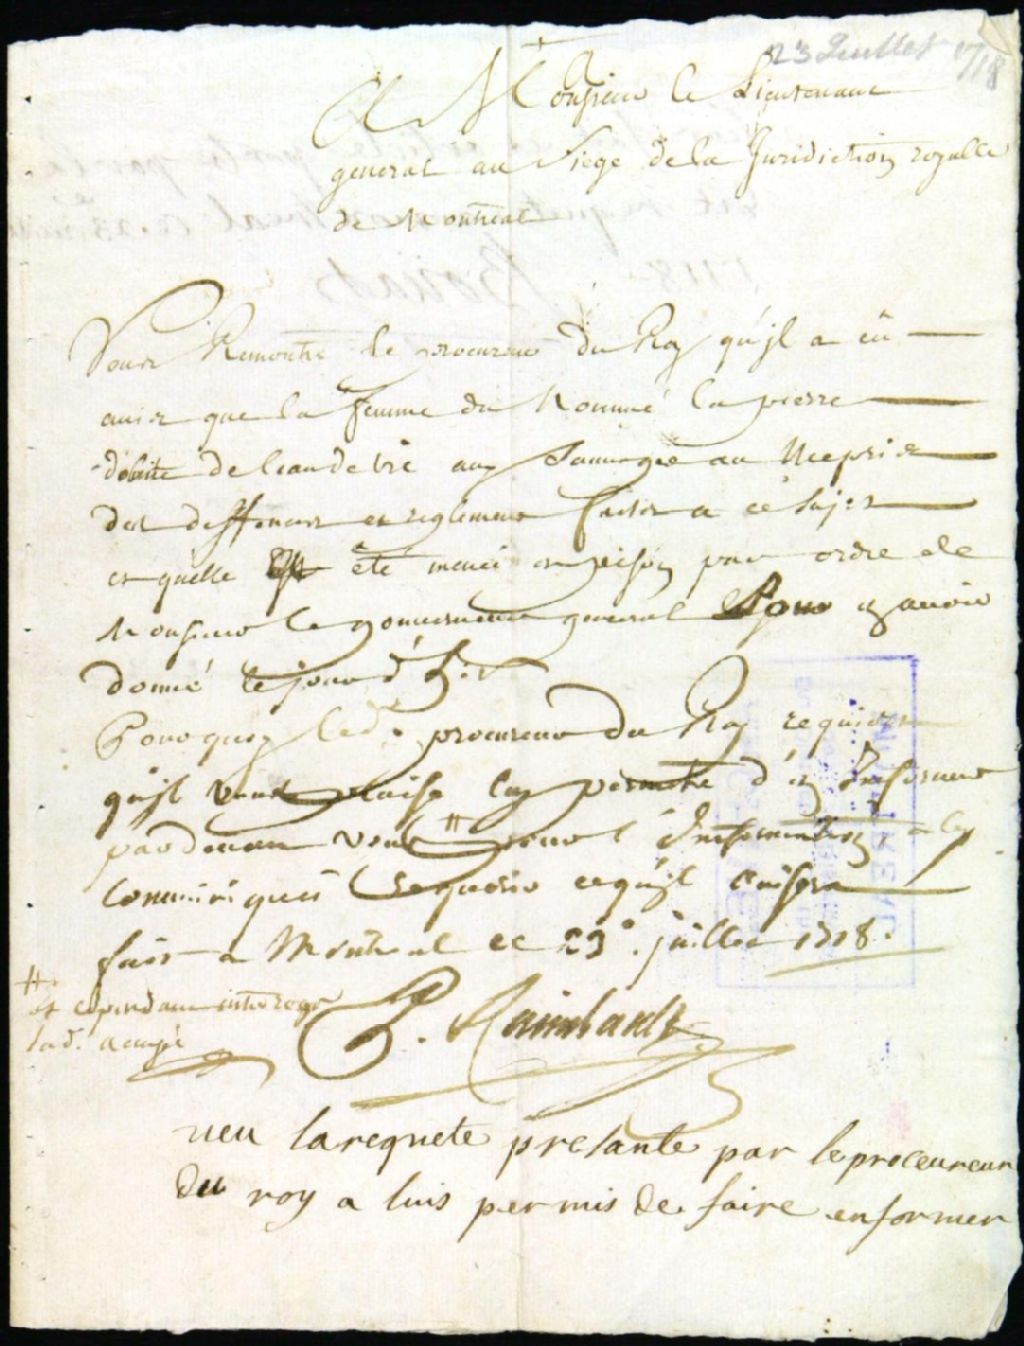 23 Juillet 1718
A Monsieur le Lieutenant
general au Siege de la Juridiction royalle
de Montreal
Vous Remontre le procureur du Roy qu'jl a eû
auis que la femme du Nommé la pierre
débitte de leaudevie aux Sauuages au Mepris
des deffences et reglemens faits a ce sujet
et quelle a été menée en prison par ordre de
Monsieur le gouuerneur general pour en auoir
donné le jour d'h.
Pourquoy led. procureur du Roy requiert
qu'jl vous plaise luy permettre d'en Jnformer
pardeuant vous # pour l'Jnformation a luy
Communiquée Requerir ce qu'jl auisera
fait a Montreal ce 23e. juillet 1718.
# et cependant interroger
lad. accusée
P. Raimbault
ueu la requete presante par le proceureur
du roy a luis permis de faire enformer